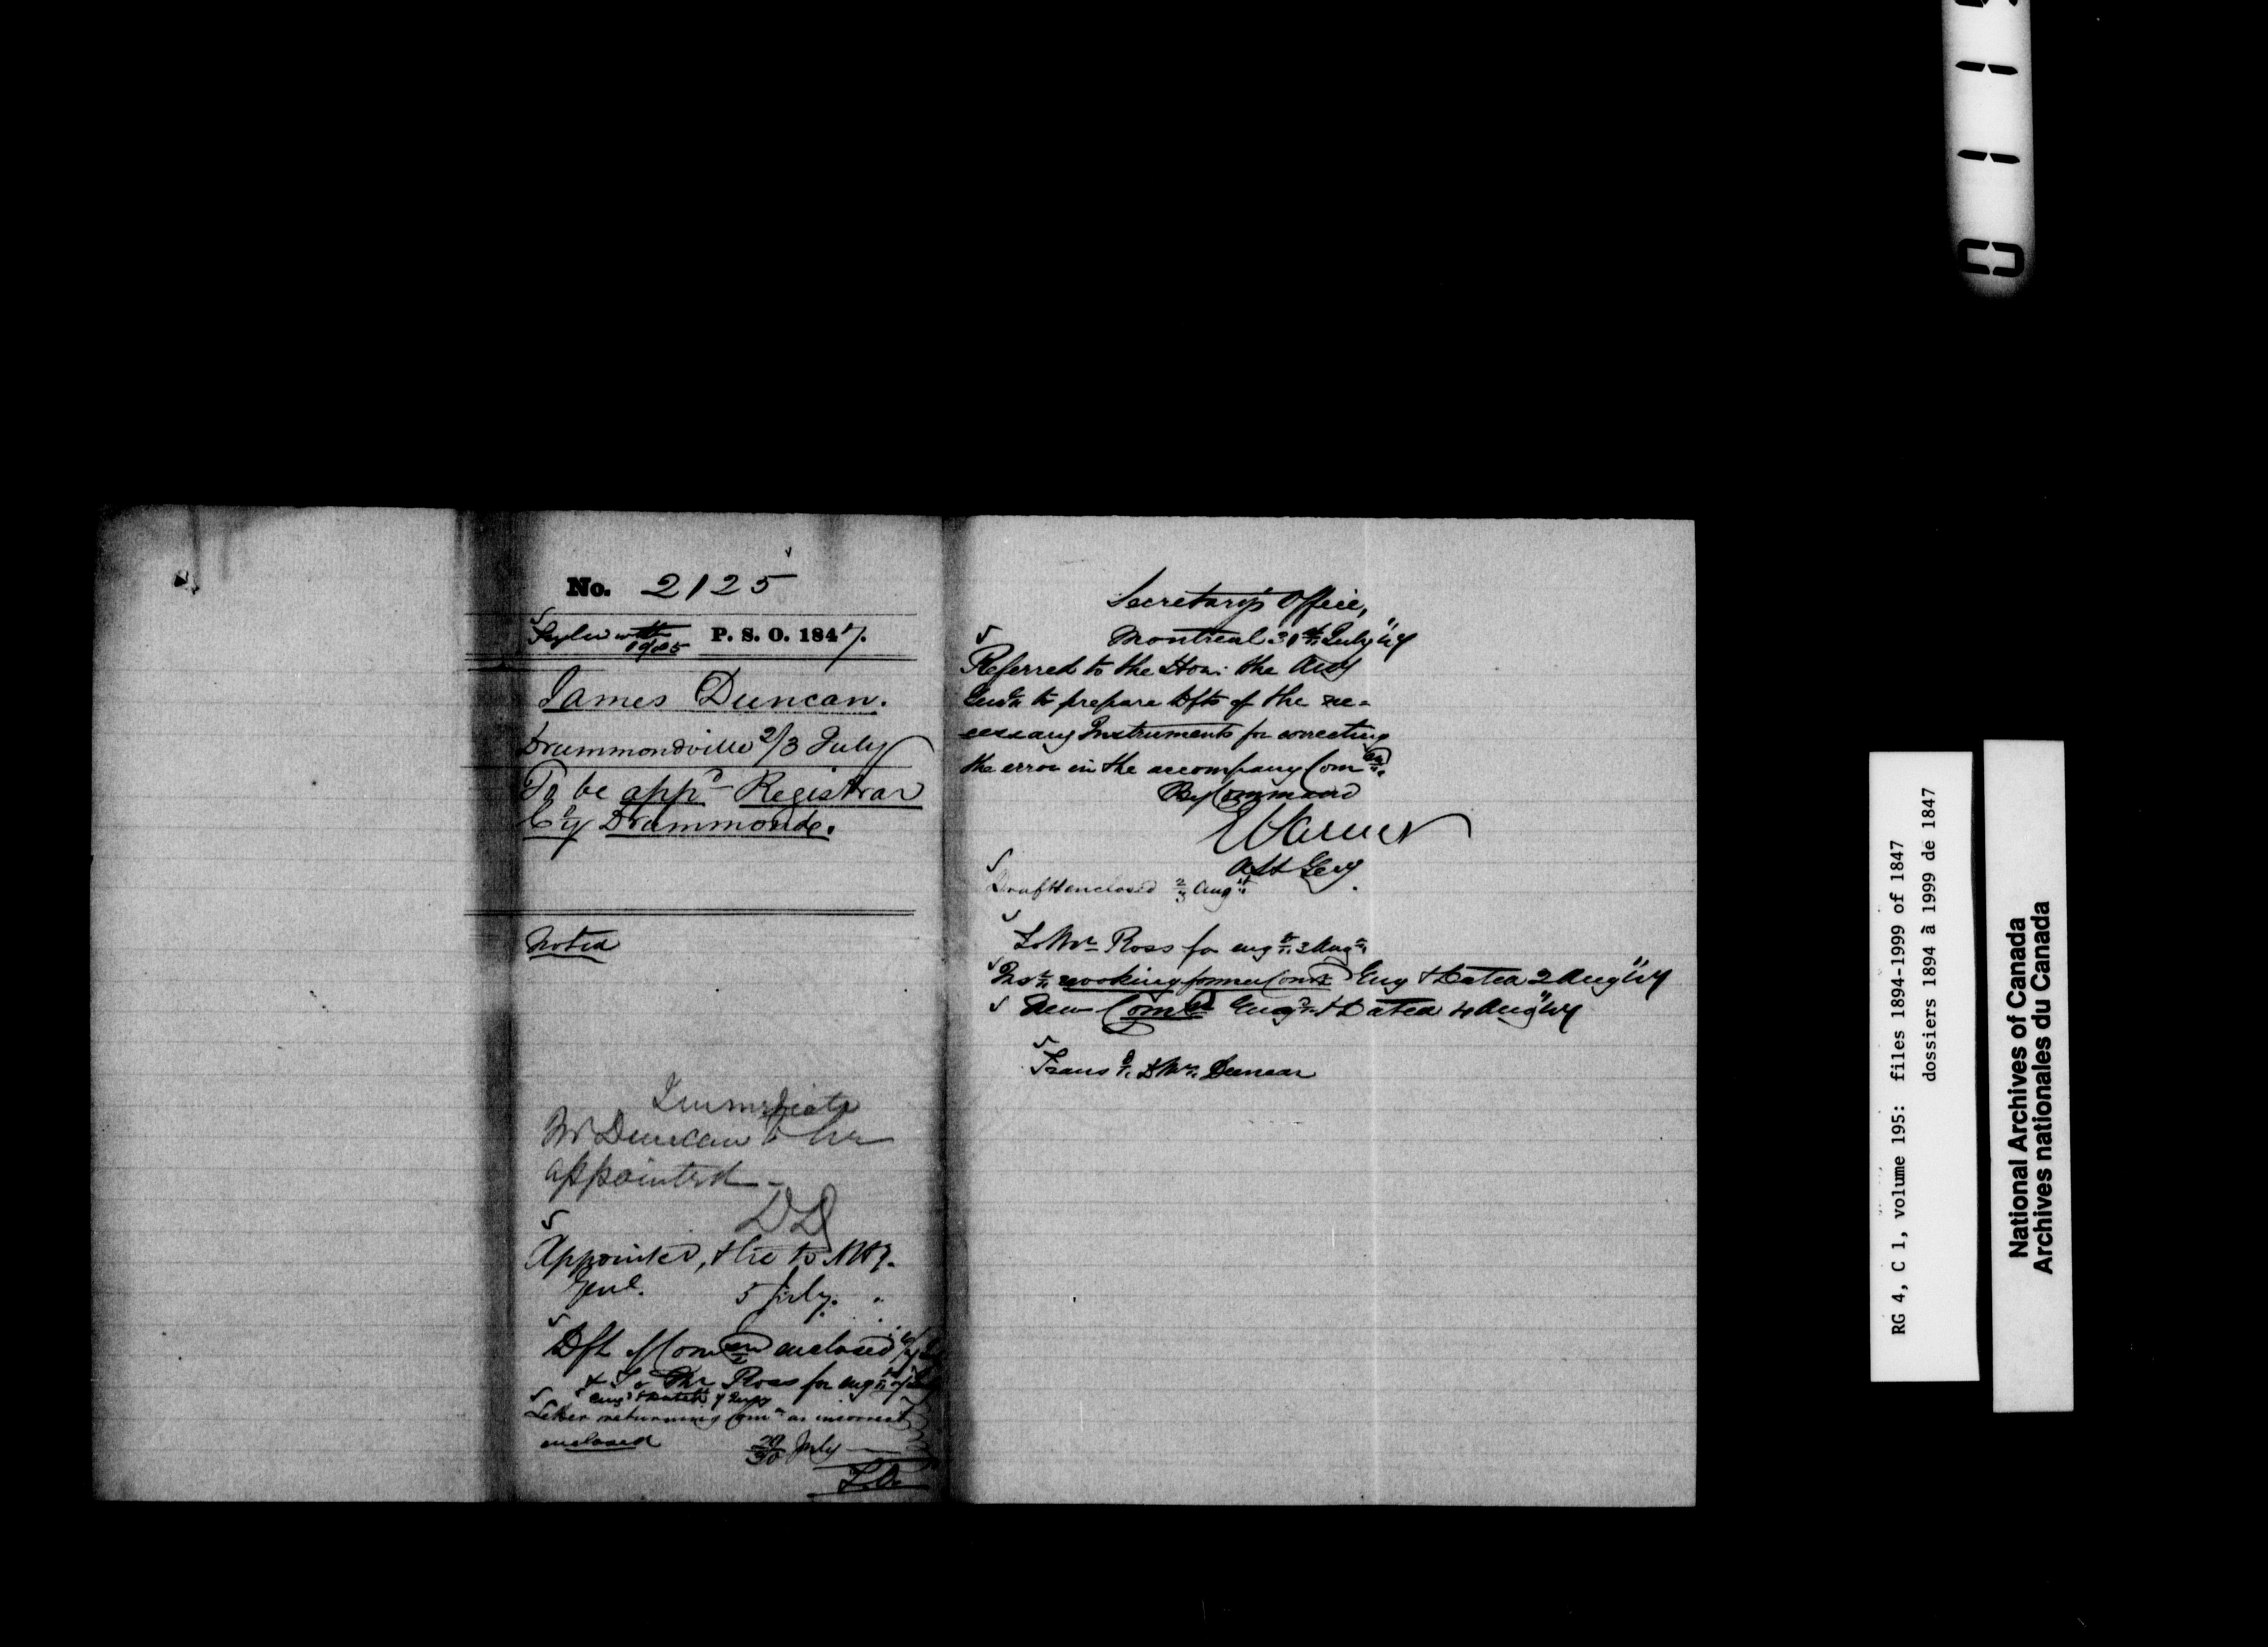 No. 2125
Fyled with 1985 P. S. O. 1847.
James Duncan.
Drummondville 2/3 July
To be appd Registrar
Cty Drummond.
Noted
Immediate
Mr Duncan to be
appointed -
DD
Appointed, & ltre to Atty.
Genl. 5 July. "
Dft of Comon enclosed
& To Mr Ross for engt
engd & dated 7 July
Letter returning Comn as incorrect
enclosed 29/30 July
Secretary's Office,
Montreal 31st July "47
Referred to the Hon: the Atty
Genl to prepare Dfts of the ne-
cessary Instruments for correcting
the error in the accompany Comon
By Command
Asst Secy
Draft enclosed 2/3 Augt
To Mr Ross for engt 3 Augt
Inst revoking former Comn Eng & Dated 2 Aug "47
New Comon Engd & Dated 4 Aug "47
Transd to Mr Duncan
0 1 1
RG 4, C 1, volume 195: files 1894-1999 of 1847
dossiers 1894 à 1999 de 1847
National Archives of Canada
Archives nationales du Canada